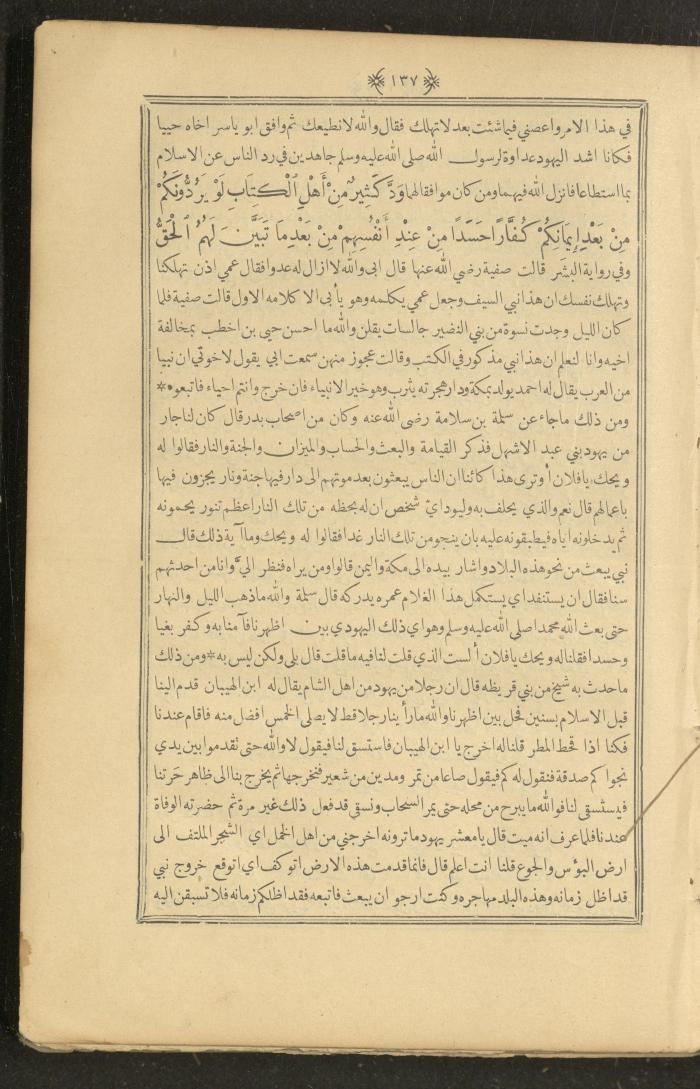 ١٣٧
في هذا الامر واعصني فيما شئت بعد لاتهلك فقال والله لانطيعك ثم وافق ابو ياسر اخاه حييا
فكانا اشد اليهود عداوة لرسول الله صلى الله عليه وسلم جاهدين في رد الناس عن الاسلام
بما استطاعا فانزل الله فيهما ومن كان موافقا لهما وَدَّ كَثِيرٌ مِنْ أَهْلِ ٱلْكِتَابِ لَوْ يَرُدُّونَكُمْ
مِنْ بَعْدِ إِيمَانِكُمْ كُفَّارًا حَسَدًا مِنْ عِنْدِ أَنْفُسِهِمْ مِنْ بَعْدِ مَا تَبَيَّنَ لَهُمُ ٱلْحَقُّ
وفي رواية البشر قالت صفية رضي الله عنها قال ابى والله لا ازال له عدوا فقال عمي اذن تهلكنا
وتهلك نفسك ان هذا نبي السيف وجعل عمي يكلمه وهو يأبى الا كلامه الاول قالت صفية فلما
كان الليل وجدت نسوة من بني النضير جالسات يقلن والله ما احسن حيى بن اخطب بمخالفة
اخيه وانا لنعلم ان هذا نبي مذكور في الكتب وقالت عجوز منهن سمعت ابي يقول لاخوتي ان نبيا
من العرب يقال له احمد يولد بمكة ودار هجرته يثرب وهو خير الانبياء فان خرج وانتم احياء فاتبعوه *
ومن ذلك ماجاء عن سلمة بن سلامة رضى الله عنه وكان من اصحاب بدر قال كان لنا جار
من يهود بني عبد الاشهل فذكر القيامة والبعث والحساب والميزان والجنة والنار فقالوا له
ويحك يافلان أوترى هذا كائنا ان الناس يبعثون بعد موتهم الى دار فيها جنة ونار يجزون فيها
باعمالهم قال نعم والذي يحلف به وليود ايّ شخص ان له بحظه من تلك النار اعظم تنور يحمونه
ثم يدخلونه اياه فيطبقونه عليه بان ينجو من تلك النار غدا فقالوا له ويحك وما آية ذلك قال
نبي يبعث من نحو هذه البلاد واشار بيده الى مكة واليمن قالوا ومن يراه فنظر اليّ وانا من احدثهم
سنا فقال ان يستنفد اي يستكمل هذا الغلام عمره يدركه قال سلمة والله ماذهب الليل والنهار
حتى بعث الله محمدا صلى الله عليه وسلم وهو اي ذلك اليهودي بين اظهرنا فآمنا به وكفر بغيا
وحسدا فقلنا له ويحك يافلان ألست الذي قلت لنا فيه ماقلت قال بلى ولكن ليس به * ومن ذلك
ماحدث به شيخ من بني قريظه قال ان رجلا من يهود من اهل الشام يقال له ابن الهيبان قدم الينا
قبل الاسلام بسنين فحل بين اظهرنا والله مارأينا رجلا قط لايصلى الخمس افضل منه فاقام عندنا
فكنا اذا قحط المطر قلنا له اخرج يا ابن الهيبان فاستسق لنا فيقول لا والله حتى تقدموا بين يدي
نجواكم صدقة فنقول له كم فيقول صاعا من تمر ومدين من شعير فنخرجها ثم يخرج بنا الى ظاهر حرتنا
فيستسقى لنا فوالله مايبرح من محله حتى يمر السحاب ونسقي قد فعل ذلك غير مرة ثم حضرته الوفاة
عندنا فلما عرف انه ميت قال يا معشر يهود ما ترونه اخرجني من اهل الخمل اي الشجر الملتف الى
ارض البؤس والجوع قلنا انت اعلم قال فانما قدمت هذه الارض اتوكف اي اتوقع خروج نبي
قد اظل زمانه وهذه البلد مهاجره وكنت ارجو ان يبعث فاتبعه فقد اظلكم زمانه فلا تسبقن اليه